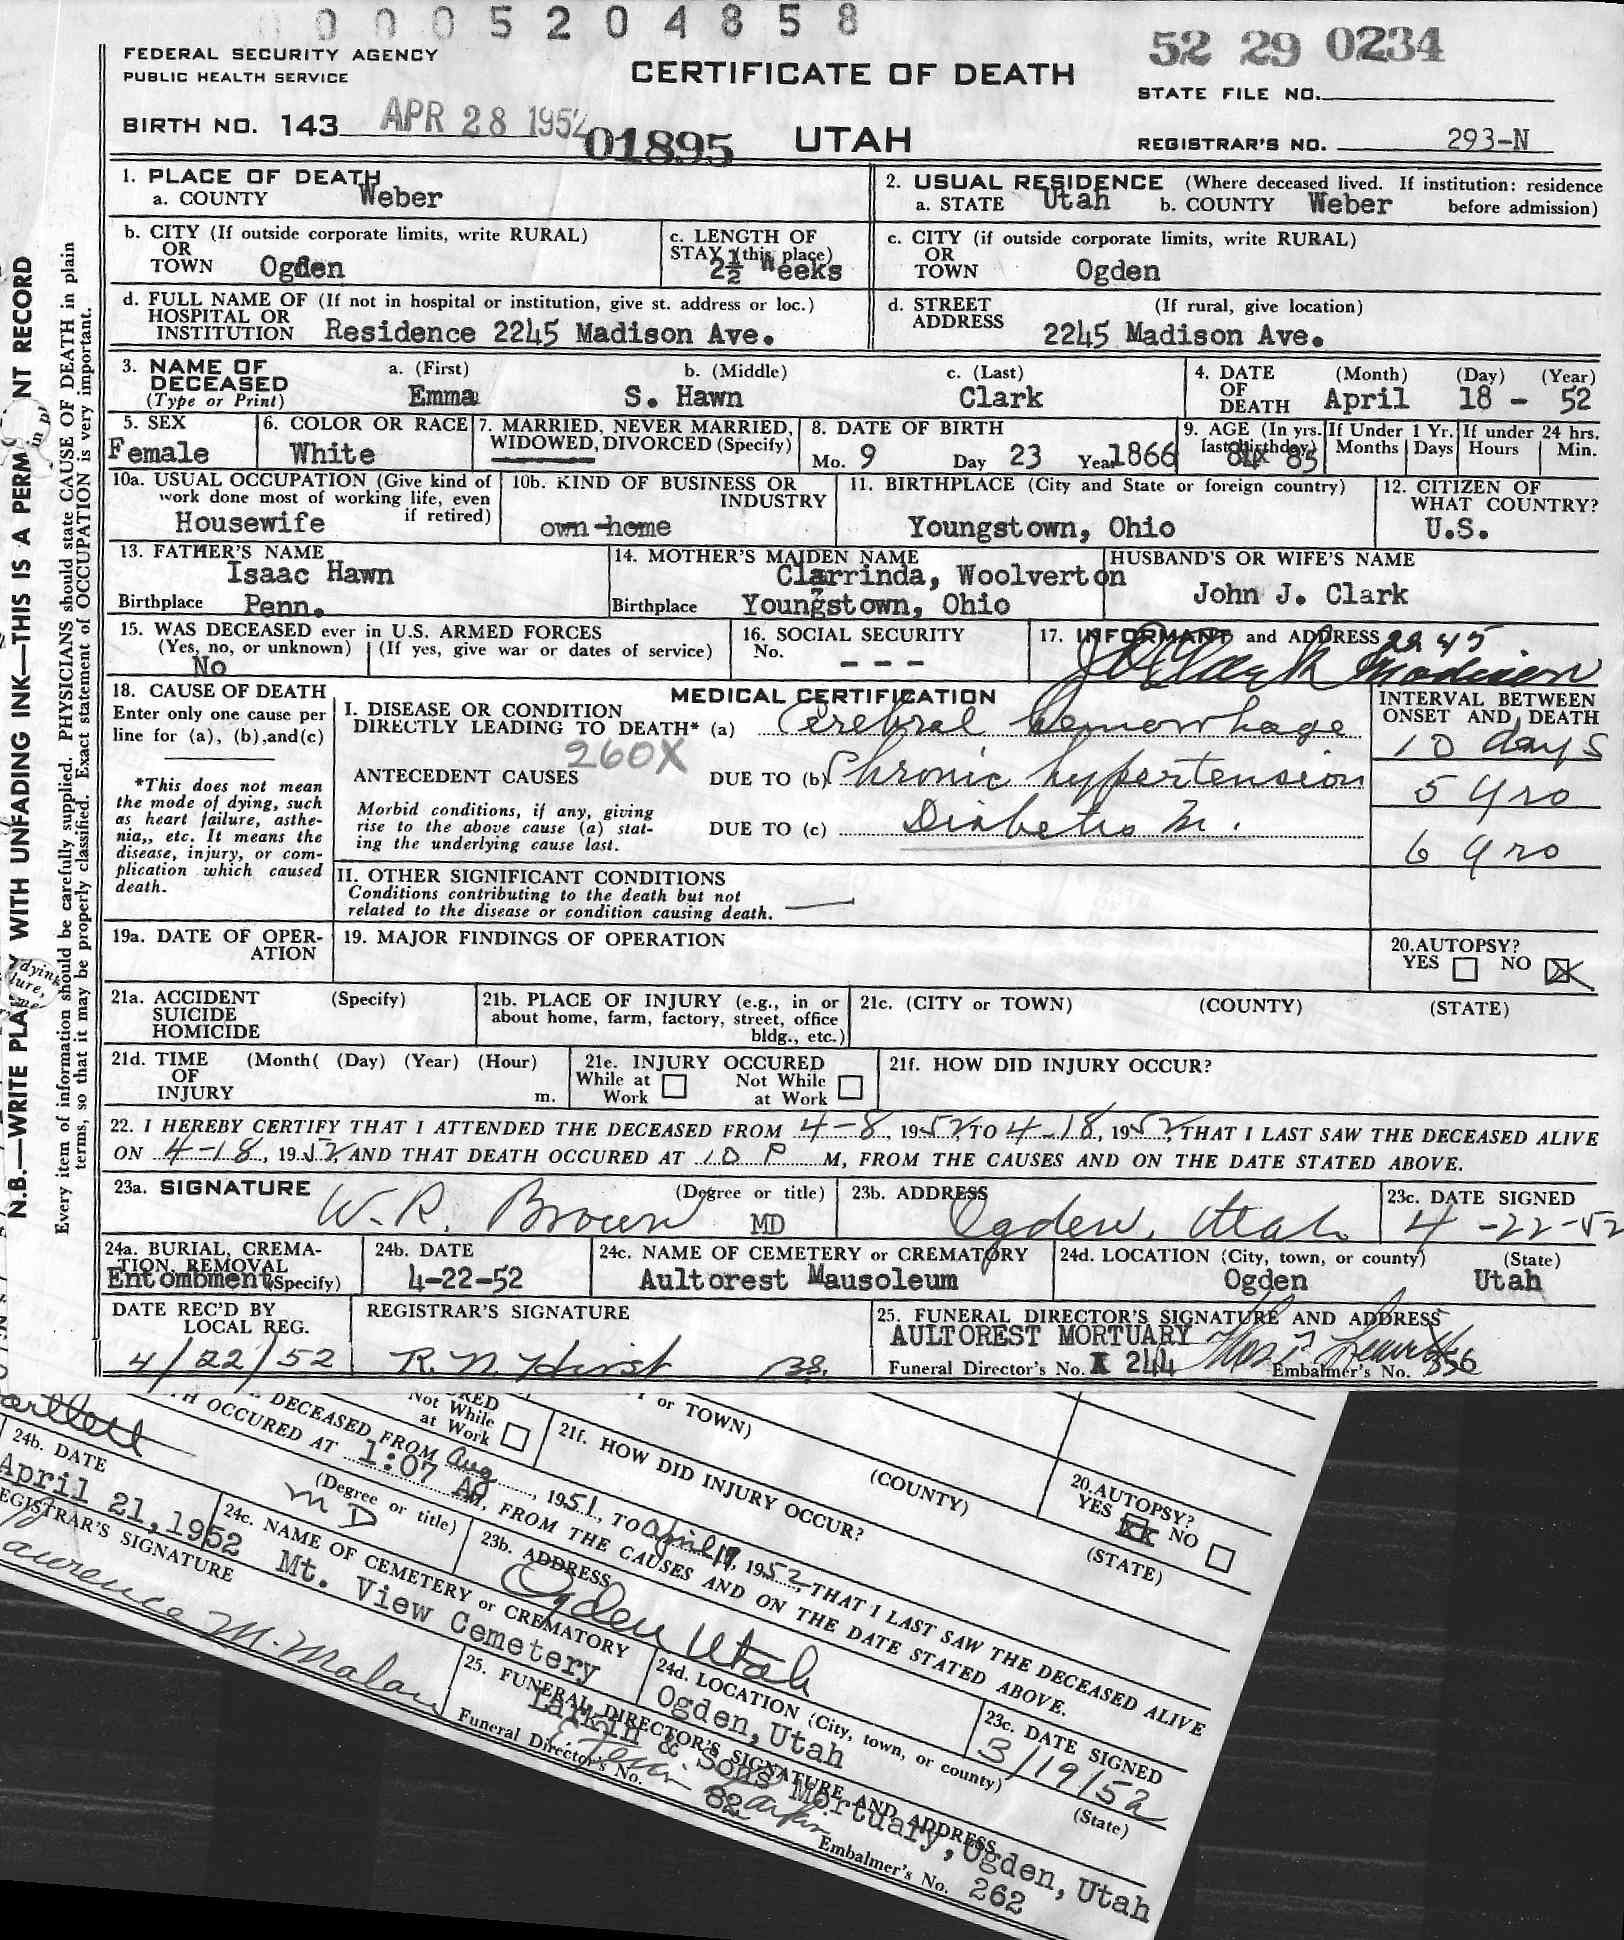 0 0 0 5 2 0 4 8 5 8
52 29 0234
FEDERAL SECURITY AGENCY
PUBLIC HEALTH SERVICE
CERTIFICATE OF DEATH
STATE FILE NO.
BIRTH NO. 143 APR 28 1952
01895 UTAH
REGISTRAR'S NO. 293-N
1. PLACE OF DEATH
a. COUNTY Weber
2. USUAL RESIDENCE (Where deceased lived. If institution: residence before admission)
a. STATE Utah b. COUNTY Weber
b. CITY (If outside corporate limits, write RURAL)
OR
TOWN Ogden
c. LENGTH OF
STAY (this place)
2½ Weeks
c. CITY (if outside corporate limits, write RURAL)
OR
TOWN Ogden
d. FULL NAME OF (If not in hospital or institution, give st. address or loc.)
HOSPITAL OR
INSTITUTION Residence 2245 Madison Ave.
d. STREET (If rural, give location)
ADDRESS 2245 Madison Ave.
3. NAME OF
DECEASED
(Type or Print)
a. (First) b. (Middle) c. (Last)
Emma S. Hawn Clark
4. DATE
OF
DEATH
(Month) (Day) (Year)
April 18 - 52
5. SEX
Female
6. COLOR OR RACE
White
7. MARRIED, NEVER MARRIED,
WIDOWED, DIVORCED (Specify)
8. DATE OF BIRTH
Mo. 9 Day 23 Year 1866
9. AGE (In yrs.
last birthday) 85
If Under 1 Yr.
Months Days
If under 24 hrs.
Hours Min.
10a. USUAL OCCUPATION (Give kind of
work done most of working life, even
if retired)
Housewife
10b. KIND OF BUSINESS OR
INDUSTRY
own home
11. BIRTHPLACE (City and State or foreign country)
Youngstown, Ohio
12. CITIZEN OF
WHAT COUNTRY?
U.S.
13. FATHER'S NAME
Isaac Hawn
Birthplace Penn.
14. MOTHER'S MAIDEN NAME
Clarrinda, Woolverton
Birthplace Youngstown, Ohio
HUSBAND'S OR WIFE'S NAME
John J. Clark
15. WAS DECEASED ever in U.S. ARMED FORCES
(Yes, no, or unknown) (If yes, give war or dates of service)
No
16. SOCIAL SECURITY
No. - - -
17. INFORMANT and ADDRESS 2245
Clark Madison
18. CAUSE OF DEATH
Enter only one cause per
line for (a), (b),and(c)
*This does not mean
the mode of dying, such
as heart failure, asthe-
nia,, etc. It means the
disease, injury, or com-
plication which caused
death.
MEDICAL CERTIFICATION
I. DISEASE OR CONDITION
DIRECTLY LEADING TO DEATH* (a) Cerebral hemorrhage
260X
ANTECEDENT CAUSES DUE TO (b) Chronic hypertension
Morbid conditions, if any, giving
rise to the above cause (a) stat-
ing the underlying cause last.
DUE TO (c) Diabetis M.
INTERVAL BETWEEN
ONSET AND DEATH
10 days
5 yrs
6 yrs
II. OTHER SIGNIFICANT CONDITIONS
Conditions contributing to the death but not
related to the disease or condition causing death.
19a. DATE OF OPER-
ATION
19. MAJOR FINDINGS OF OPERATION
20.AUTOPSY?
YES NO X
21a. ACCIDENT (Specify)
SUICIDE
HOMICIDE
21b. PLACE OF INJURY (e.g., in or
about home, farm, factory, street, office
bldg., etc.)
21c. (CITY or TOWN) (COUNTY) (STATE)
21d. TIME (Month( (Day) (Year) (Hour)
OF
INJURY m.
21e. INJURY OCCURED
While at Work Not While at Work
21f. HOW DID INJURY OCCUR?
22. I HEREBY CERTIFY THAT I ATTENDED THE DECEASED FROM 4-8, 1952, TO 4-18, 1952, THAT I LAST SAW THE DECEASED ALIVE
ON 4-18, 1952, AND THAT DEATH OCCURED AT 10 P M, FROM THE CAUSES AND ON THE DATE STATED ABOVE.
23a. SIGNATURE (Degree or title)
W. R. Brown MD
23b. ADDRESS
Ogden, Utah
23c. DATE SIGNED
4-22-52
24a. BURIAL, CREMA-
TION, REMOVAL
Entombment (Specify)
24b. DATE
4-22-52
24c. NAME OF CEMETERY or CREMATORY
Aultorest Mausoleum
24d. LOCATION (City, town, or county) (State)
Ogden Utah
DATE REC'D BY
LOCAL REG.
4/22/52
REGISTRAR'S SIGNATURE
R. N. Hirst
25. FUNERAL DIRECTOR'S SIGNATURE AND ADDRESS
AULTOREST MORTUARY
Funeral Director's No. 244 Embalmer's No. 356
N.B.—WRITE PLAINLY WITH UNFADING INK—THIS IS A PERM NT RECORD
Every item of information should be carefully supplied. PHYSICIANS should state CAUSE OF DEATH in plain
terms, so that it may be properly classified. Exact statement of OCCUPATION is very important.
dying
lure,
RED
Not While
at Work
or TOWN) (COUNTY) (STATE)
21f. HOW DID INJURY OCCUR?
20.AUTOPSY?
YES XX NO
DECEASED FROM Aug, 1951, TO April 19, 1952, THAT I LAST SAW THE DECEASED ALIVE
TH OCCURED AT 1:07 A M, FROM THE CAUSES AND ON THE DATE STATED ABOVE.
(Degree or title)
MD
23b. ADDRESS
Ogden Utah
23c. DATE SIGNED
3/19/52
24b. DATE
April 21,1952
24c. NAME OF CEMETERY or CREMATORY
Mt. View Cemetery
24d. LOCATION (City, town, or county) (State)
Ogden,Utah
EGISTRAR'S SIGNATURE
M. Malan
25. FUNERAL DIRECTOR'S SIGNATURE AND ADDRESS
Larkin & Sons Mortuary,Ogden, Utah
Larkin
Funeral Director's No. 82 Embalmer's No. 262